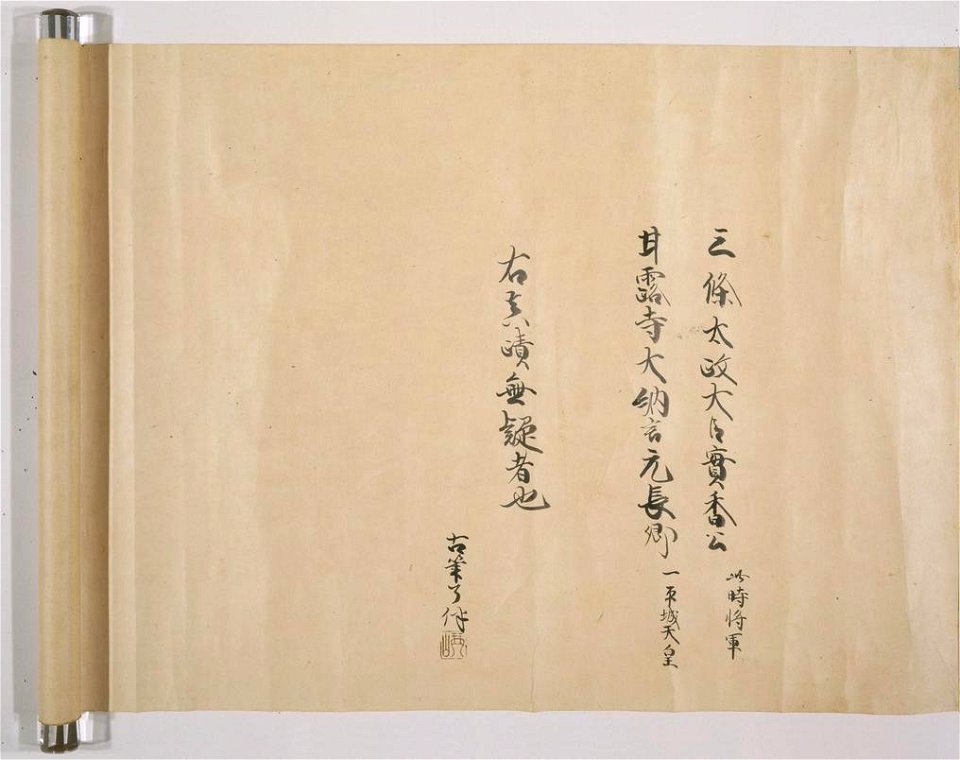 三條太政大臣實香公 此時将軍
甘露寺大納言元長卿 一平城天皇
右真蹟無疑者也
古筆了伴